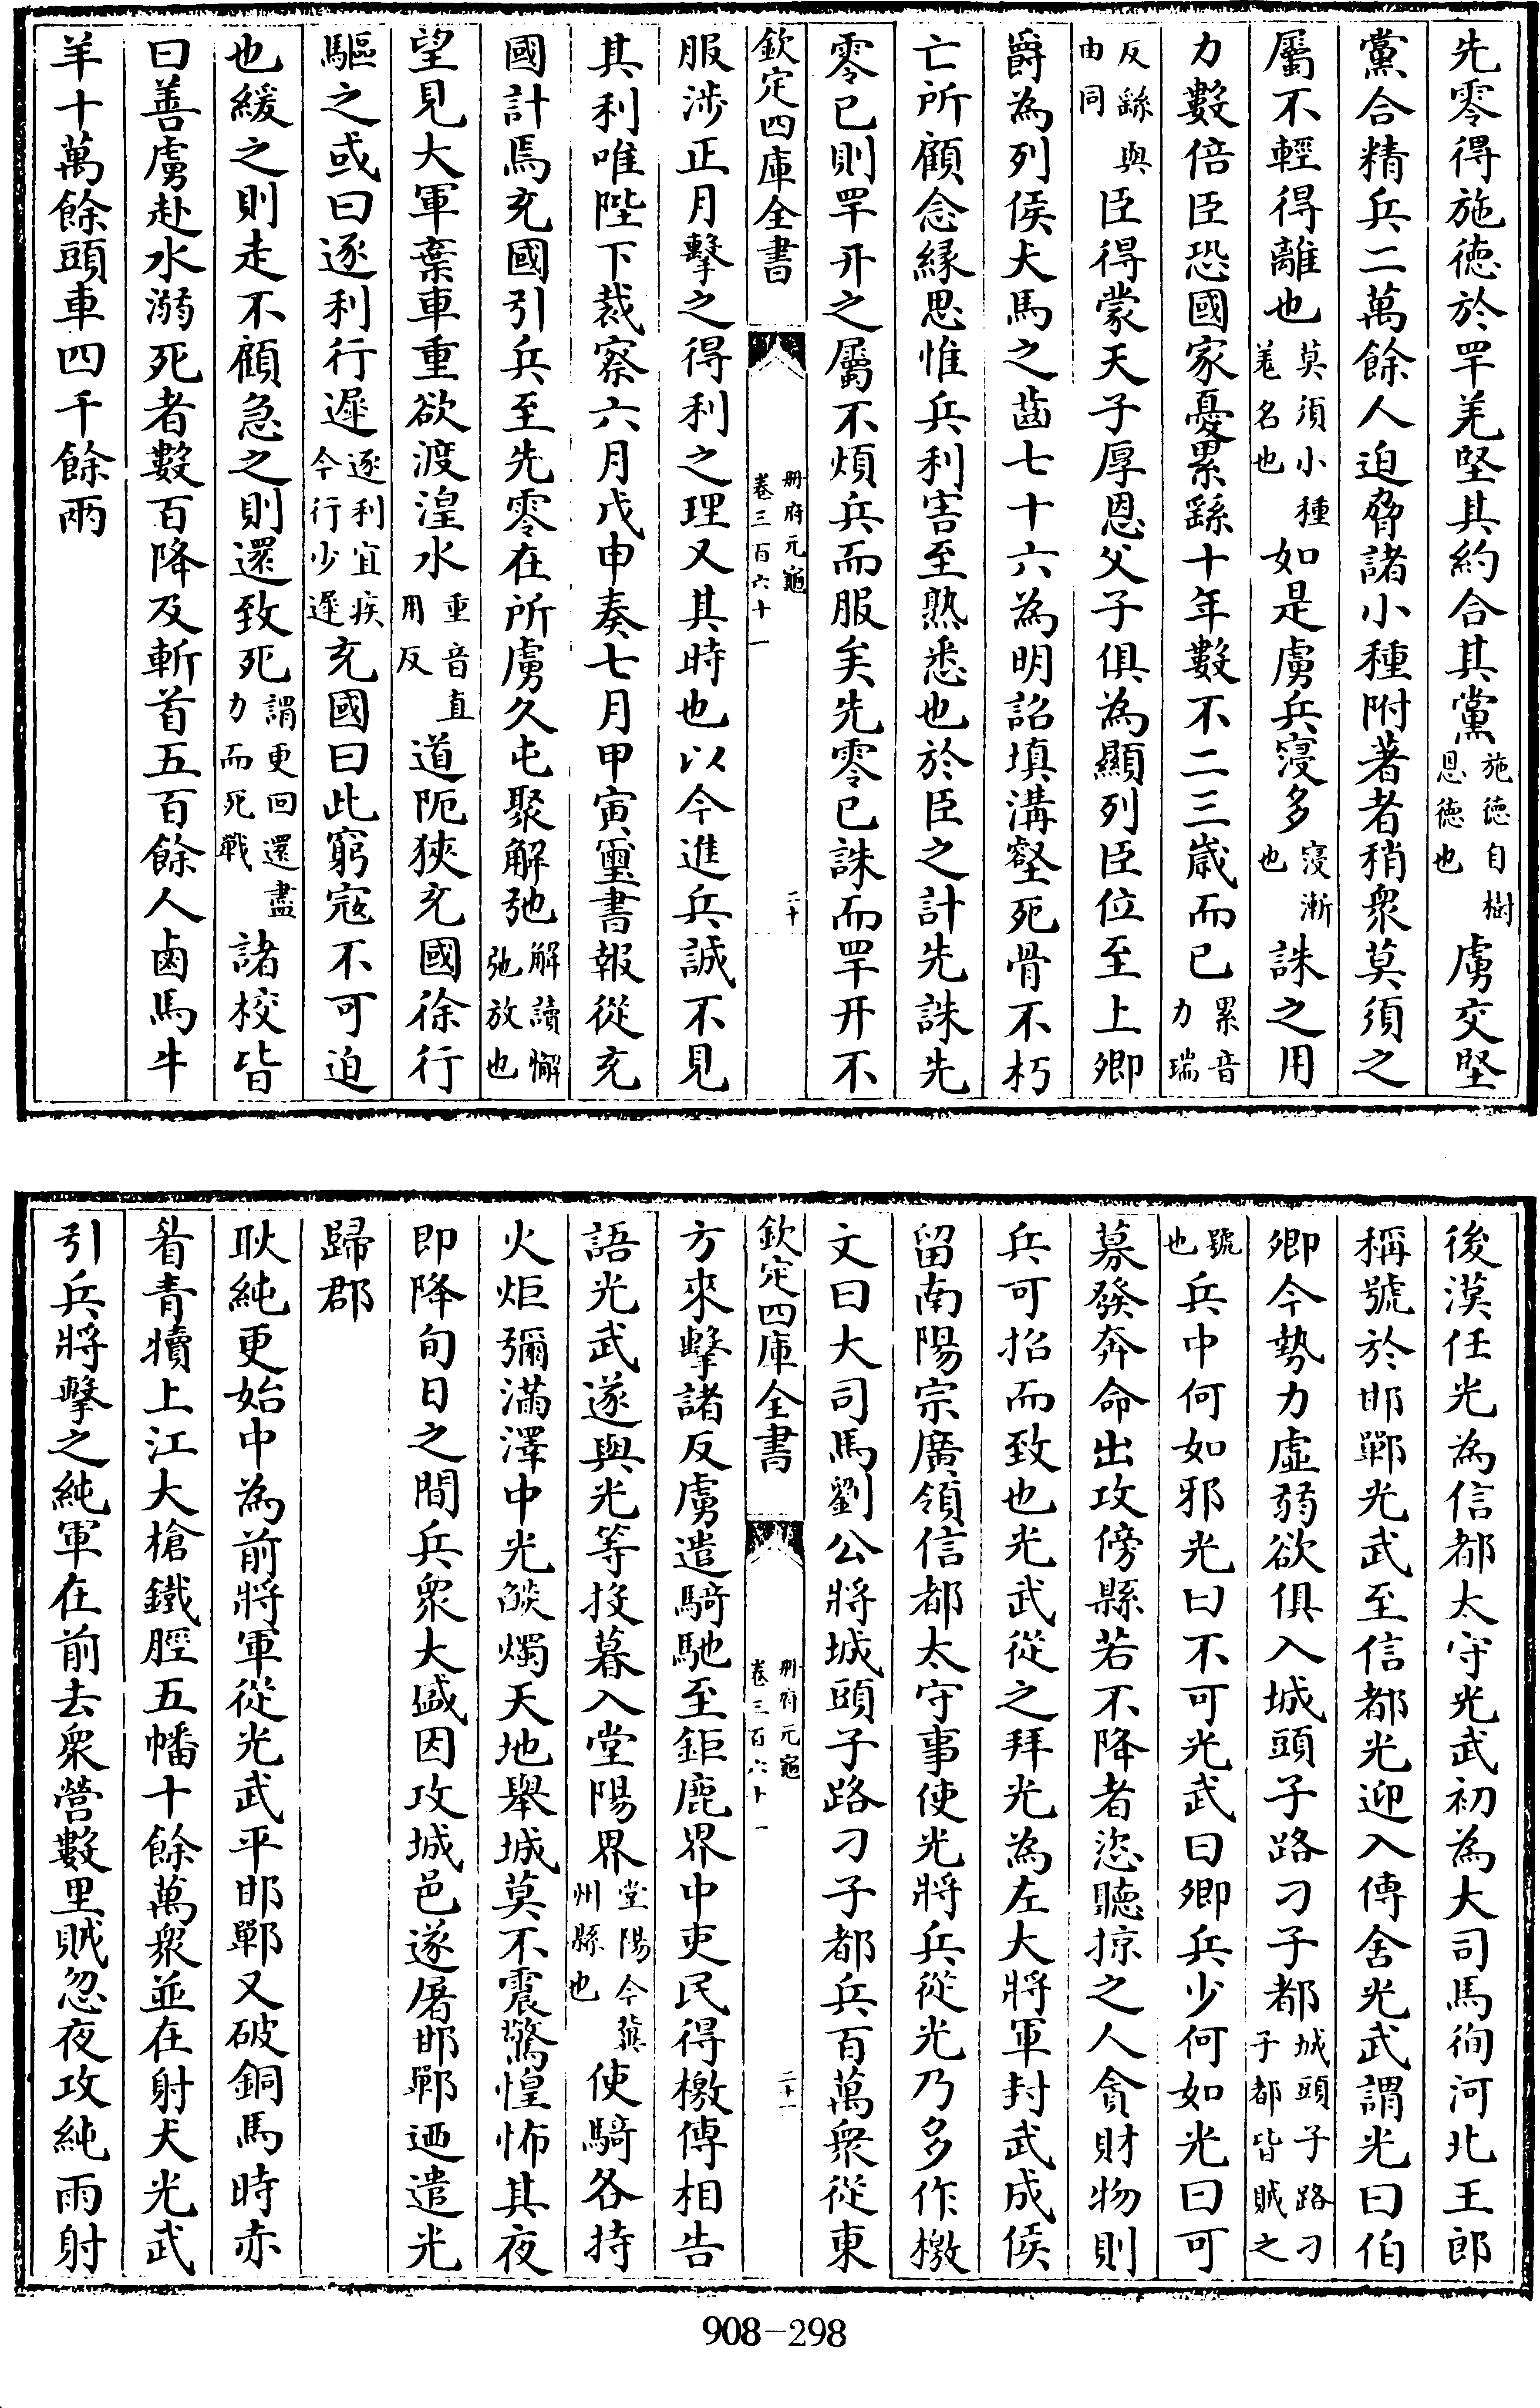 先零得施徳於罕羌堅其約合其黨施徳自樹恩徳也虜交堅
黨合精兵二萬餘人迫脅諸小種附著者稍衆莫須之
屬不輕得離也莫須小種羌名也如是虜兵寖多寖漸也誅之用
力數倍臣恐國家憂累繇十年數不二三歲而已累音力瑞
反繇與由同臣得蒙天子厚恩父子俱為顯列臣位至上卿
爵為列侯犬馬之齒七十六為明詔填溝壑死骨不朽
亡所顧念縁思惟兵利害至熟悉也於臣之計先誅先
零已則罕幵之屬不煩兵而服矣先零已誅而罕幵不
欽定四庫全書 冊府元龜卷三百六十一 二十
服涉正月擊之得利之理又其時也以今進兵誠不見
其利唯陛下裁察六月戊申奏七月甲寅璽書報從充
國計焉充國引兵至先零在所虜久屯聚解弛解讀懈弛放也
望見大軍棄車重欲渡湟水重音直用反道阨狹充國徐行
驅之或曰逐利行遲逐利宜疾今行少遲充國曰此窮寇不可迫
也緩之則走不顧急之則還致死謂更回還盡力而死戰諸校皆
曰善虜赴水溺死者數百降及斬首五百餘人鹵馬牛
羊十萬餘頭車四千餘兩
後漢任光為信都太守光武初為大司馬徇河北王郎
稱號於邯鄲光武至信都光迎入傳舍光武謂光曰伯
卿今勢力虛弱欲俱入城頭子路刁子都城頭子路刁子都皆賊之
號也兵中何如邪光曰不可光武曰卿兵少何如光曰可
募發奔命出攻傍縣若不降者恣聽掠之人貪財物則
兵可招而致也光武從之拜光為左大將軍封武成侯
留南陽宗廣領信都太守事使光將兵從光乃多作檄
文曰大司馬劉公將城頭子路刁子都兵百萬衆從東
欽定四庫全書 冊府元龜卷三百六十一 二十一
方來擊諸反虜遣騎馳至鉅鹿界中吏民得檄傳相告
語光武遂與光等投暮入堂陽界堂陽今冀州縣也使騎各持
火炬彌滿澤中光燄燭天地舉城莫不震驚惶怖其夜
即降旬日之間兵衆大盛因攻城邑遂屠邯鄲迺遣光
歸郡
耿純更始中為前將軍從光武平邯鄲又破銅馬時赤
眉青犢上江大槍鐵脛五幡十餘萬衆並在射犬光武
引兵將擊之純軍在前去衆營數里賊忽夜攻純雨射
908-298